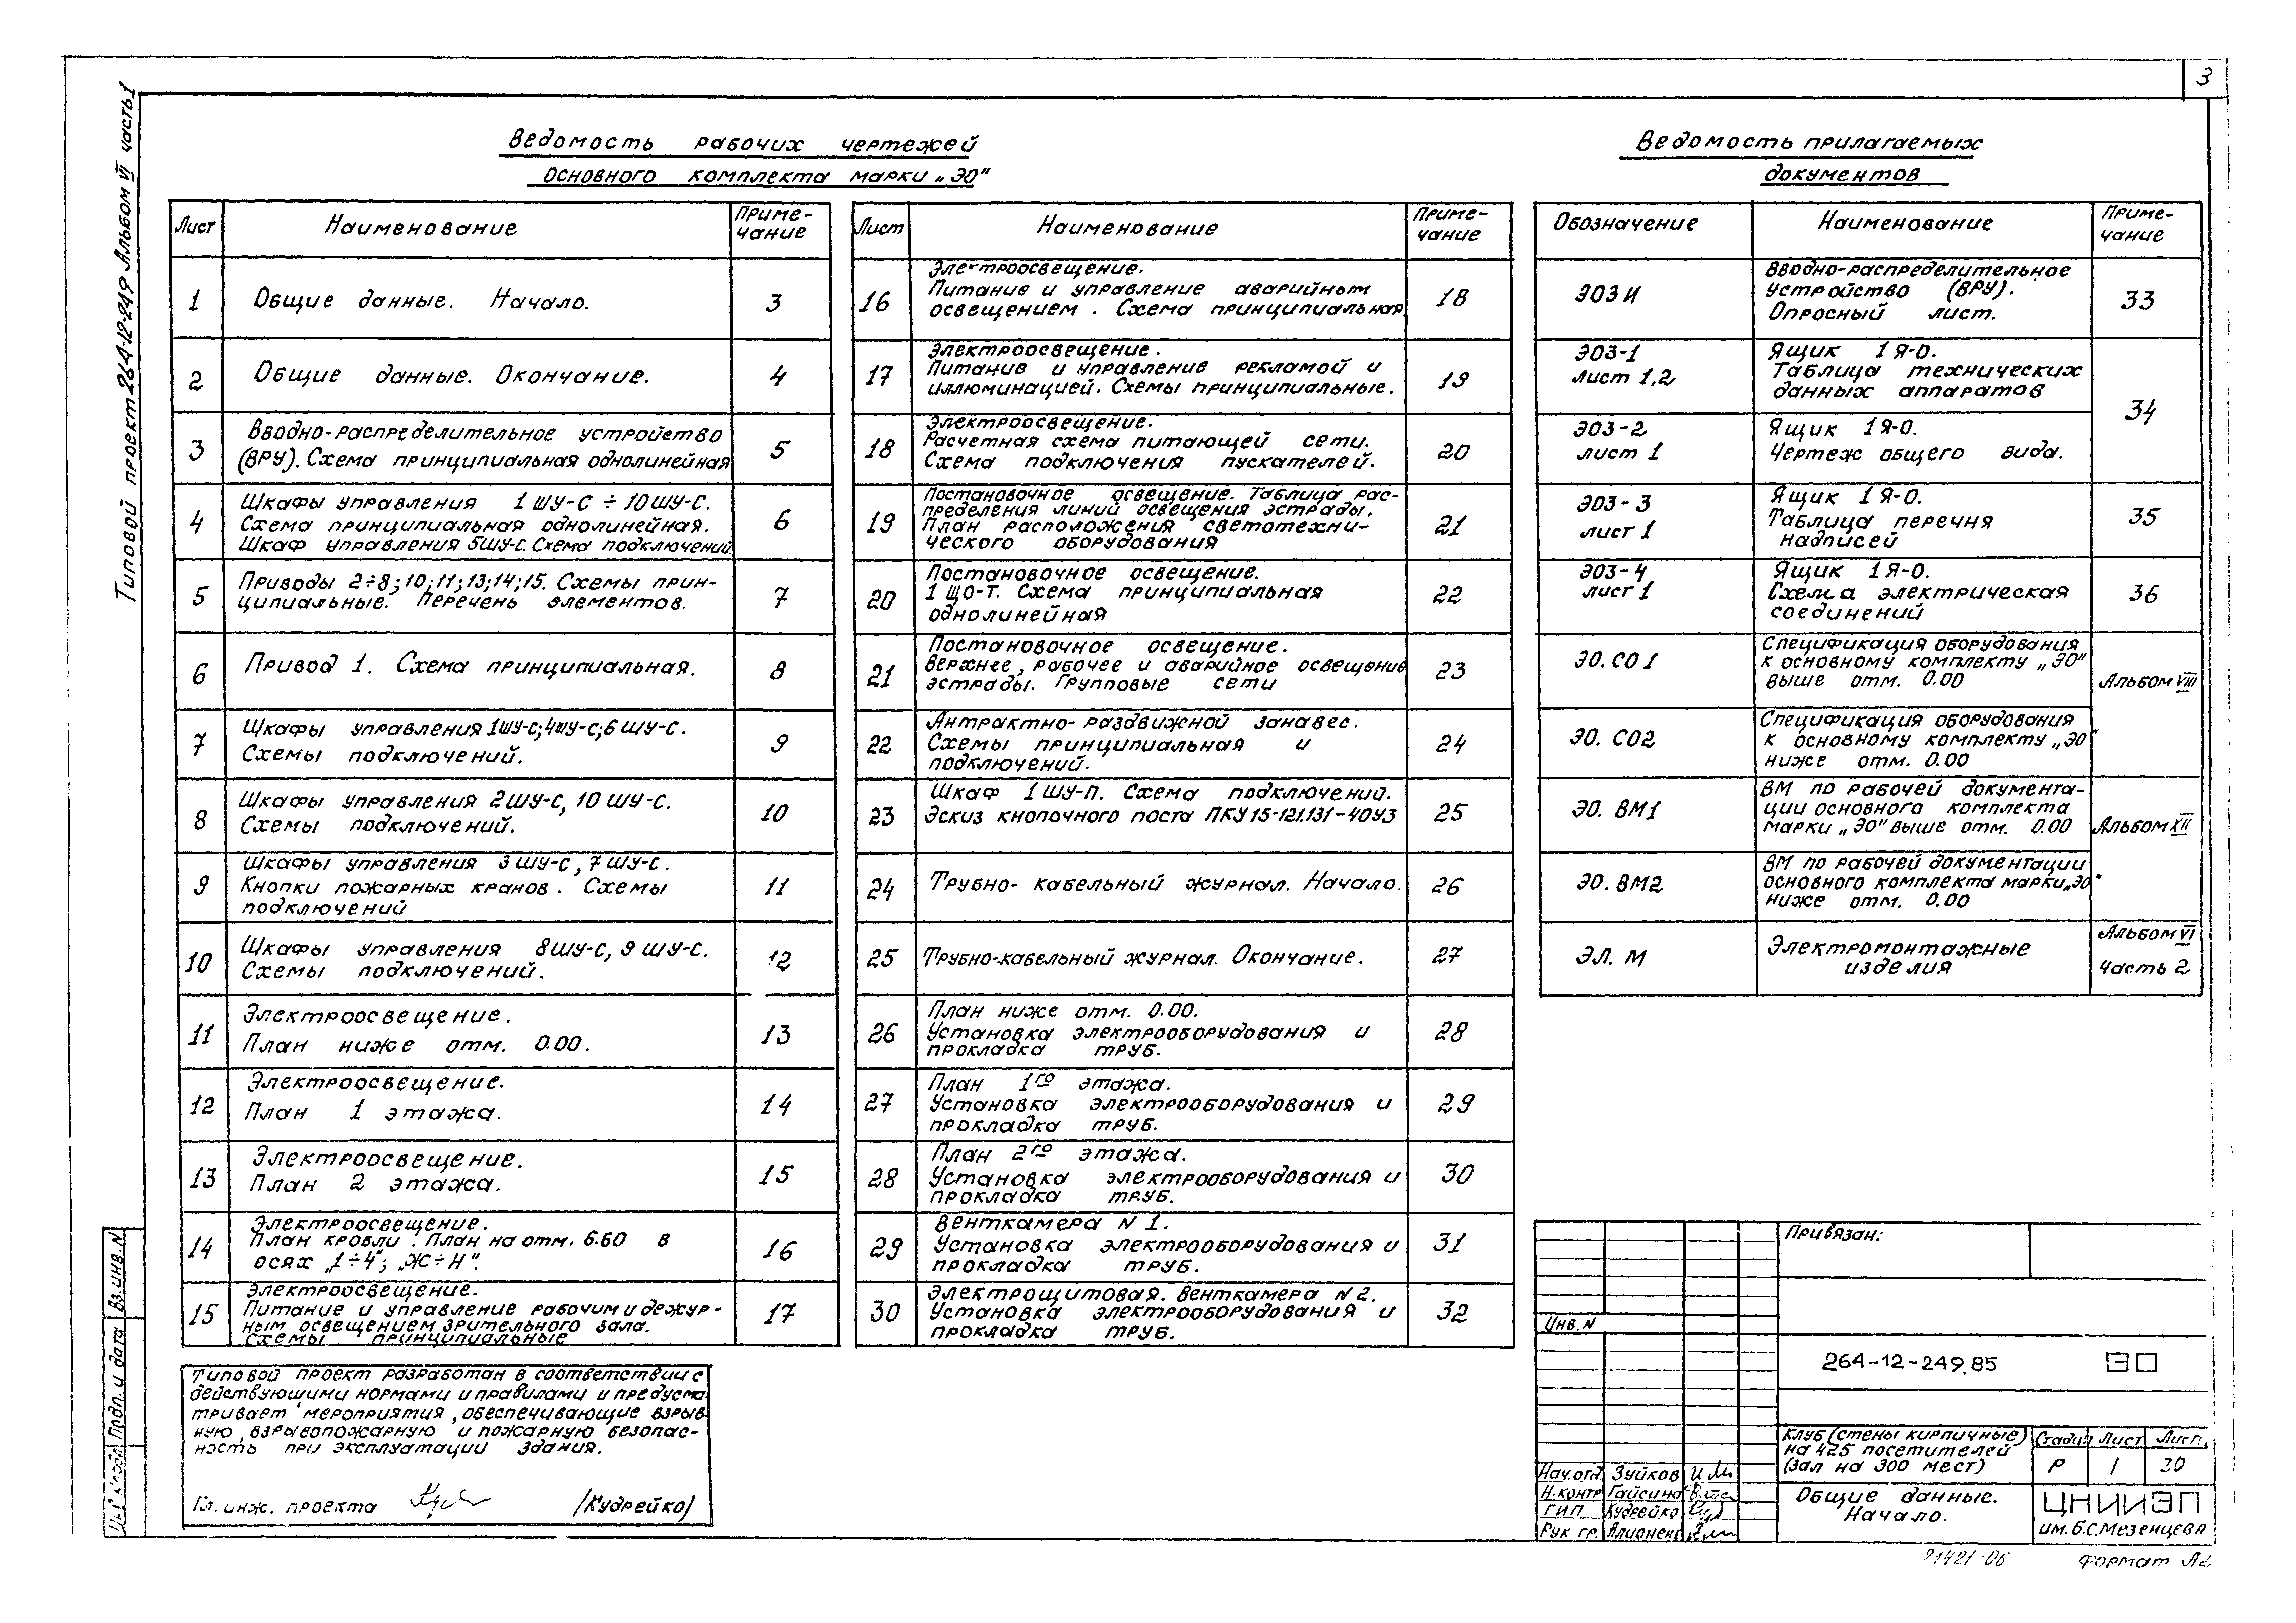 3
Типовой проект 264-12-249 Альбом VI часть 1
Ведомость рабочих чертежей
основного комплекта марки „ЭО"
Лист Наименование Приме-
чание
1 Общие данные. Начало. 3
2 Общие данные. Окончание. 4
3 Вводно-распределительное устройство
(ВРУ). Схема принципиальная однолинейная 5
4 Шкафы управления 1ШУ-С ÷ 10ШУ-С.
Схема принципиальная однолинейная.
Шкаф управления 5ШУ-С. Схема подключений. 6
5 Приводы 2÷8; 10; 11; 13; 14; 15. Схемы прин-
ципиальные. Перечень элементов. 7
6 Привод 1. Схема принципиальная. 8
7 Шкафы управления 1ШУ-С; 4ШУ-С; 6ШУ-С.
Схемы подключений. 9
8 Шкафы управления 2ШУ-С, 10ШУ-С.
Схемы подключений. 10
9 Шкафы управления 3ШУ-С, 7ШУ-С.
Кнопки пожарных кранов. Схемы
подключений 11
10 Шкафы управления 8ШУ-С, 9ШУ-С.
Схемы подключений. 12
11 Электроосвещение.
План ниже отм. 0.00. 13
12 Электроосвещение.
План 1 этажа. 14
13 Электроосвещение.
План 2 этажа. 15
14 Электроосвещение.
План кровли. План на отм. 6.60 в
осях „1÷4"; „Ж÷И". 16
15 Электроосвещение.
Питание и управление рабочим и дежур-
ным освещением зрительного зала.
Схемы принципиальные 17
Лист Наименование Приме-
чание
16 Электроосвещение.
Питание и управление аварийным
освещением. Схема принципиальная 18
17 Электроосвещение.
Питание и управление рекламой и
иллюминацией. Схемы принципиальные. 19
18 Электроосвещение.
Расчетная схема питающей сети.
Схема подключения пускателей. 20
19 Постановочное освещение. Таблица рас-
пределения линий освещения эстрады.
План расположения светотехни-
ческого оборудования 21
20 Постановочное освещение.
1ЩО-Т. Схема принципиальная
однолинейная 22
21 Постановочное освещение.
Верхнее, рабочее и аварийное освещение
эстрады. Групповые сети 23
22 Антрактно-раздвижной занавес.
Схемы принципиальная и
подключений. 24
23 Шкаф 1ШУ-П. Схема подключений.
Эскиз кнопочного поста ПКУ15-121.131-40У3 25
24 Трубно-кабельный журнал. Начало. 26
25 Трубно-кабельный журнал. Окончание. 27
26 План ниже отм. 0.00.
Установка электрооборудования и
прокладка труб. 28
27 План 1го этажа.
Установка электрооборудования и
прокладка труб. 29
28 План 2го этажа.
Установка электрооборудования и
прокладка труб. 30
29 Венткамера N 1.
Установка электрооборудования и
прокладка труб. 31
30 Электрощитовая. Венткамера N 2.
Установка электрооборудования и
прокладка труб. 32
Ведомость прилагаемых
документов
Обозначение Наименование Приме-
чание
ЭОЗИ Вводно-распределительное
устройство (ВРУ).
Опросный лист. 33
ЭОЗ-1
лист 1,2 Ящик 1Я-О.
Таблица технических
данных аппаратов 34
ЭОЗ-2
лист 1 Ящик 1Я-О.
Чертеж общего вида.
ЭОЗ-3
лист 1 Ящик 1Я-О.
Таблица перечня
надписей 35
ЭОЗ-4
лист 1 Ящик 1Я-О.
Схема электрическая
соединений 36
ЭО. СО1 Спецификация оборудования
к основному комплекту „ЭО"
выше отм. 0.00 Альбом VIII
ЭО. СО2 Спецификация оборудования
к основному комплекту „ЭО"
ниже отм. 0.00
ЭО. ВМ1 ВМ по рабочей документа-
ции основного комплекта
марки „ЭО" выше отм. 0.00 Альбом XII
ЭО. ВМ2 ВМ по рабочей документации
основного комплекта марки „ЭО"
ниже отм. 0.00
ЭЛ. М Электромонтажные
изделия Альбом VI
часть 2
Типовой проект разработан в соответствии с
действующими нормами и правилами и предусма-
тривает мероприятия, обеспечивающие взрыв-
ную, взрывопожарную и пожарную безопас-
ность при эксплуатации здания.
Гл. инж. проекта /Кудрейко/
Вз. инв. N
Подп. и дата
Привязан:
Инв. N
264-12-249.85 ЭО
Клуб (стены кирпичные)
на 425 посетителей
(зал на 300 мест)
Стадия Лист Листов
Р 1 30
Нач. отд. Зуйков
Н. контр Гайсина
ГИП Кудрейко
Рук гр.
Общие данные.
Начало.
ЦНИИЭП
им. Б.С. Мезенцева
21421-06 Формат А2